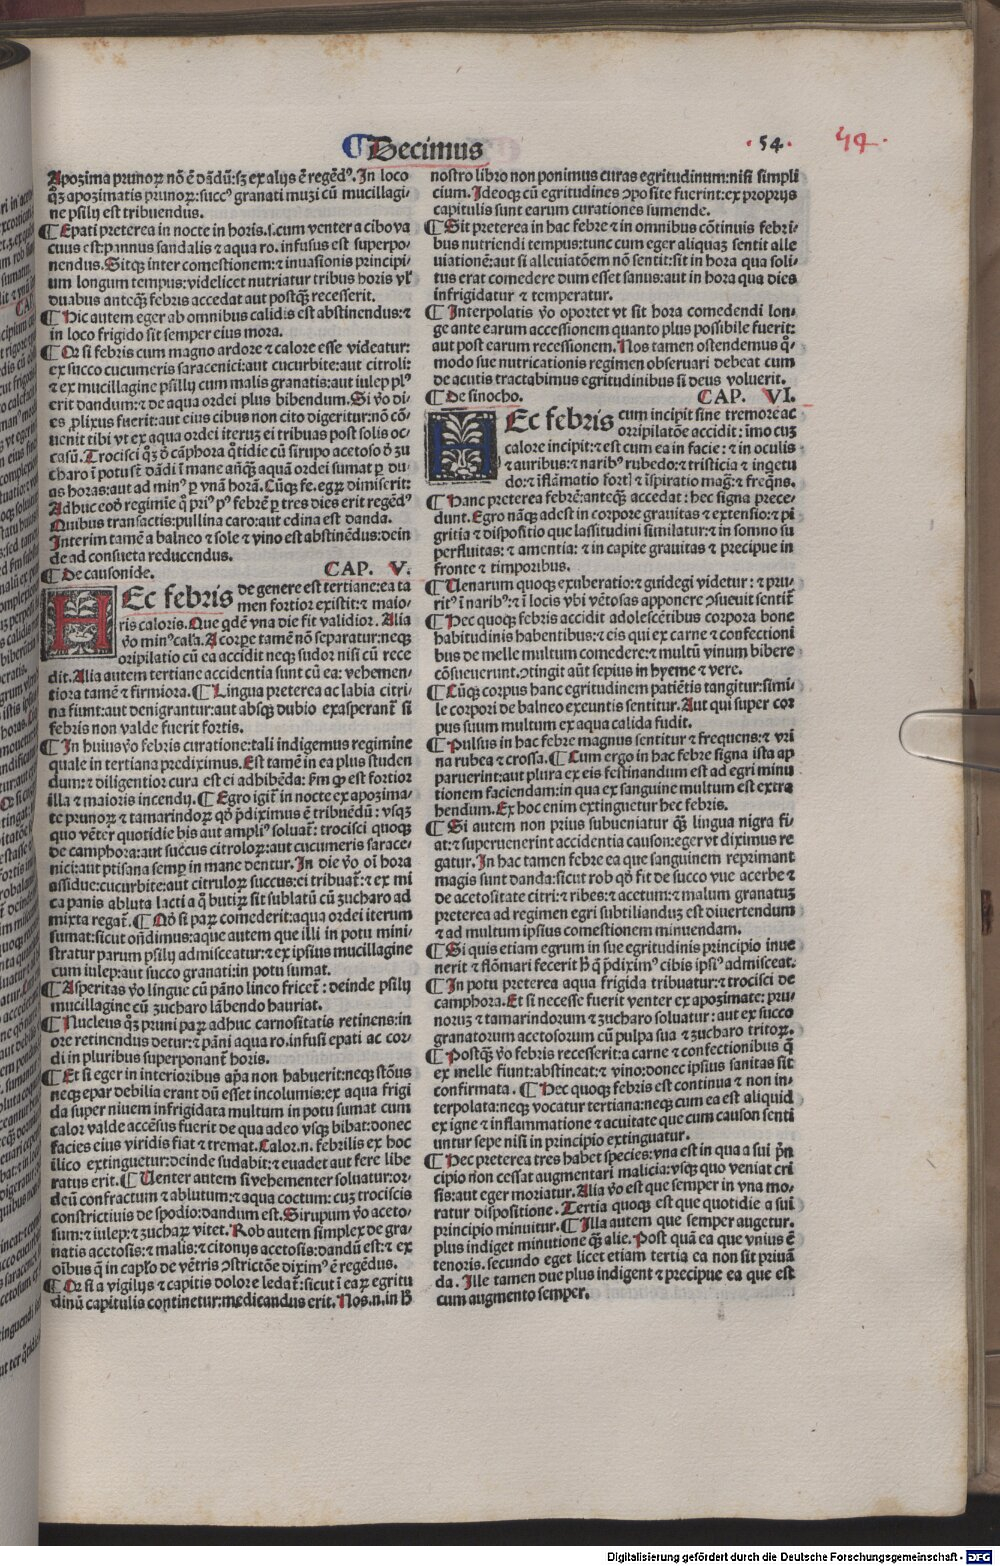 ¶Decimus
·54· 44·
Apozima prunoꝝ nō ē dādū:sꝫ ex alijs ē regēdꝰ.In loco
qꝫ apozimatis prunoꝝ:succꝰ granati muzi cū mucillagi
ne psilij est tribuendus.
¶Epati preterea in nocte in horis.s.cum venter a cibo va
cuus est:pannus sandalis ⁊ aqua ro.infusus est superpo-
nendus.Sitqꝫ inter comestionem:⁊ inuasionis principi-
um longum tempus:videlicet nutriatur tribus horis vł
duabus anteqꝫ febris accedat aut postqꝫ recesserit.
¶Hic autem eger ab omnibus calidis est abstinendus:⁊
in loco frigido sit semper eius mora.
¶Or si febris cum magno ardore ⁊ calore esse videatur:
ex succo cucumeris saracenici:aut cucurbite:aut citroli:
⁊ ex mucillagine psillij cum malis granatis:aut iulep plꝰ
erit dandum:⁊ de aqua ordei plus bibendum.Si ꝟo di-
es ꝓlixus fuerit:aut eius cibus non cito digeritur:nō cō-
uenit tibi vt ex aqua ordei iteruꝫ ei tribuas post solis oc
casū.Trocisci qꝫ ꝺ cāphora q̄tidie cū sirupo acetoso ꝺ zu
charo ī potu sᷓt dādi ī mane añqꝫ aquā ordei sumat ꝑ du-
as horas:aut ad minꝰ ꝑ vnā horā.Cūqꝫ fe.egꝝ dimiserit:
Adhuc eoꝺ regimīe q̄ priꝰ pꝰ febrē ꝑ tres dies erit regēdꝰ
Quibus transactis:pullina caro:aut edina est danda.
Interim tamē a balneo ⁊ sole ⁊ vino est abstinēdus:dein
de ad consueta reducendus.
¶De causonide. CAP. V.
HEc febris de genere est tertiane:ea ta
men fortior existit:⁊ maio-
ris caloris.Que qdē vna die fit validior.Alia
ꝟo minꝰ cal'a.A corꝑe tamē nō separatur:neqꝫ
oripilatio cū ea accidit neqꝫ sudor nisi cū rece
dit.Alia autem tertiane accidentia sunt cū ea: vehemen-
tiora tamē ⁊ firmiora.¶Lingua preterea ac labia citri-
na fiunt:aut denigrantur:aut absqꝫ dubio exasperant᷑ si
febris non valde fuerit fortis.
¶In huius ꝟo febris curatione:tali indigemus regimine
quale in tertiana prediximus.Est tamē in ea plus studen
dum:⁊ diligentior cura est ei adhibēda: fm̄ ꝙ est fortior
illa ⁊ maioris incendij.¶Egro igit᷑ in nocte ex apozima-
te prunoꝝ ⁊ tamarindoꝝ qō p̄diximus ē tribuēdū: vsqꝫ
quo vēter quotidie bis aut ampliꝰ soluat᷑: trocisci quoqꝫ
de camphora:aut succus citroloꝝ:aut cucumeris sarace-
nici:aut ptisana semꝑ in mane dentur.In die ꝟo oī hora
assidue:cucurbite:aut citruloꝝ succus:ei tribuat᷑:⁊ ex mi
ca panis abluta lacti a q̄ butiꝝ sit sublatū cū zucharo ad
mixta regat᷑.¶Qō si paꝝ comederit:aqua ordei iterum
sumat:sicut oñdimus:aque autem que illi in potu mini-
stratur parum psilij admisceatur:⁊ ex ipsius mucillagine
cum iulep:aut succo granati:in potu sumat.
¶Asperitas ꝟo lingue cū pāno lineo fricet᷑: deinde psilij
mucillagine cū zucharo lābendo hauriat.
¶Nucleus qꝫ pruni paꝝ adhuc carnositatis retinens:in
ore retinendus detur:⁊ pāni aqua ro.infusi epati ac cor-
di in pluribus superponant᷑ horis.
¶Et si eger in interioribus ap̄a non habuerit:neqꝫ stōus
neqꝫ epar debilia erant dū esset incolumis:ex aqua frigi
da super niuem infrigidata multum in potu sumat cum
calor valde accēsus fuerit de qua adeo vsqꝫ bibat:donec
facies eius viridis fiat ⁊ tremat.Calor.n.febrilis ex hoc
īlico extinguetur:deinde sudabit:⁊ euadet aut fere libe
ratus erit.¶Uenter autem si vehementer soluatur:or-
deū confractum ⁊ ablutum:⁊ aqua coctum:cuꝫ trociscis
constrictiuis de spodio:dandum est.Sirupum ꝟo aceto-
sum:⁊ iulep:⁊ zuchaꝝ vitet.Rob autem simplex de gra-
natis acetosis:⁊ malis:⁊ citonijs acetosis:dandū est:⁊ ex
oībus q̄ in capło de vētris ↄstrictōe diximꝰ ē regēdus.
¶Or si a vigilijs ⁊ capitis dolore ledat᷑:sicut ī eaꝝ egritu
dinū capitulis continetur:medicandus erit.Nos.n.in ħ
nostro libro non ponimus curas egritudinum:nisi simpli
cium.Ideoqꝫ cū egritudines ↄposite fuerint:ex proprijs
capitulis sunt earum curationes sumende.
¶Sit preterea in hac febre ⁊ in omnibus cōtinuis febri-
bus nutriendi tempus:tunc cum eger aliquaꝫ sentit alle
uiationē:aut si alleuiatōem nō sentit:sit in hora qua soli-
tus erat comedere dum esset sanus:aut in hora qua dies
infrigidatur ⁊ temperatur.
¶Interpolatis ꝟo oportet vt sit hora comedendi lon-
ge ante earum accessionem quanto plus possibile fuerit:
aut post earum recessionem.Nos tamen ostendemus q̄-
modo sue nutricationis regimen obseruari debeat cum
de acutis tractabimus egritudinibus si deus voluerit.
¶De sinocho. CAP. VI.
HEc febris cum incipit sine tremore ac
orripilatōe accidit: īmo cuꝫ
calore incipit:⁊ est cum ea in facie: ⁊ in oculis
⁊ auribus:⁊ naribꝰ rubedo:⁊ tristicia ⁊ inqetu
do:⁊ īflāmatio fort' ⁊ īspiratio mag᷑:⁊ freq̄ns.
¶Hanc preterea febrē:anteqꝫ accedat : hec signa prece-
dunt.Egro nāqꝫ adest in corpore grauitas ⁊ extensio:⁊ pi
gritia ⁊ dispositio que lassitudini similatur:⁊ in somno su
perfluitas: ⁊ amentia: ⁊ in capite grauitas ⁊ precipue in
fronte ⁊ timporibus.
¶Uenarum quoqꝫ exuberatio:⁊ guidegi videtur: ⁊ pru-
ritꝰ ī naribꝰ:⁊ ī locis vbi vētosas apponere ↄsueuit sentit᷑
¶Hec quoqꝫ febris accidit adolescētibus corpora bone
habitudinis habentibus:⁊ eis qui ex carne ⁊ confectioni
bus de melle multum comedere:⁊ multū vinum bibere
cōsueuerunt.ↄtingit aūt sepius in hyeme ⁊ vere.
¶Cūqꝫ corpus hanc egritudinem patiētis tangitur:simi-
le corpori de balneo exeuntis sentitur.Aut qui super cor
pus suum multum ex aqua calida fudit.
¶Pulsus in hac febre magnus sentitur ⁊ frequens:⁊ vri
na rubea ⁊ crossa.¶Cum ergo in hac febre signa ista ap
paruerint:aut plura ex eis festinandum est ad egri minu
tionem faciendam:in qua ex sanguine multum est extra
hendum.Ex hoc enim extinguetur hec febris.
¶Si autem non prius subueniatur qꝫ lingua nigra fi-
at:⁊ superuenerint accidentia causon:eger vt diximus re
gatur.In hac tamen febre ea que sanguinem reprimant
magis sunt danda:sicut rob qō fit de succo vue acerbe ⁊
de acetositate citri:⁊ ribes:⁊ acetum:⁊ malum granatuꝫ
preterea ad regimen egri subtilianduꝫ est diuertendum
⁊ ad multum ipsius comestionem minuendam.
¶Si quis etiam egrum in sue egritudinis principio inue
nerit ⁊ flōmari fecerit ħ q̄ p̄diximꝰ cibis ipsiꝰ admisceat.
¶In potu preterea aqua frigida tribuatur:⁊ trocisci de
camphora.Et si necesse fuerit venter ex apozimate: pru-
noruꝫ ⁊ tamarindorum ⁊ zucharo soluatur: aut ex succo
granatorum acetosorum cū pulpa sua ⁊ zucharo tritoꝝ.
¶Postqꝫ ꝟo febris recesserit:a carne ⁊ confectionibus q̄
ex melle fiunt:abstineat:⁊ vino:donec ipsius sanitas sit
confirmata. ¶Hec quoqꝫ febris est continua ⁊ non in-
terpolata:neqꝫ vocatur tertiana:neqꝫ cum ea est aliquid
ex igne ⁊ inflammatione ⁊ acuitate que cum causon senti
untur sepe nisi in principio extinguatur.
¶Hec preterea tres habet species:vna est in qua a sui prī
cipio non cessat augmentari malicia:vsqꝫ quo veniat cri
sis:aut eger moriatur.Alia ꝟo est que semper in vna mo-
ratur dispositione.Tertia quoqꝫ est que quotidie a sui
principio minuitur.¶Illa autem que semper augetur.
plus indiget minutione qꝫ alie.Post quā ea que vnius ē
tenoris.secundo eget licet etiam tertia ea non sit priuā
da.Ille tamen due plus indigent ⁊ precipue ea que est
cum augmento semper.
Digitalisierung gefördert durch die Deutsche Forschungsgemeinschaft - DFG